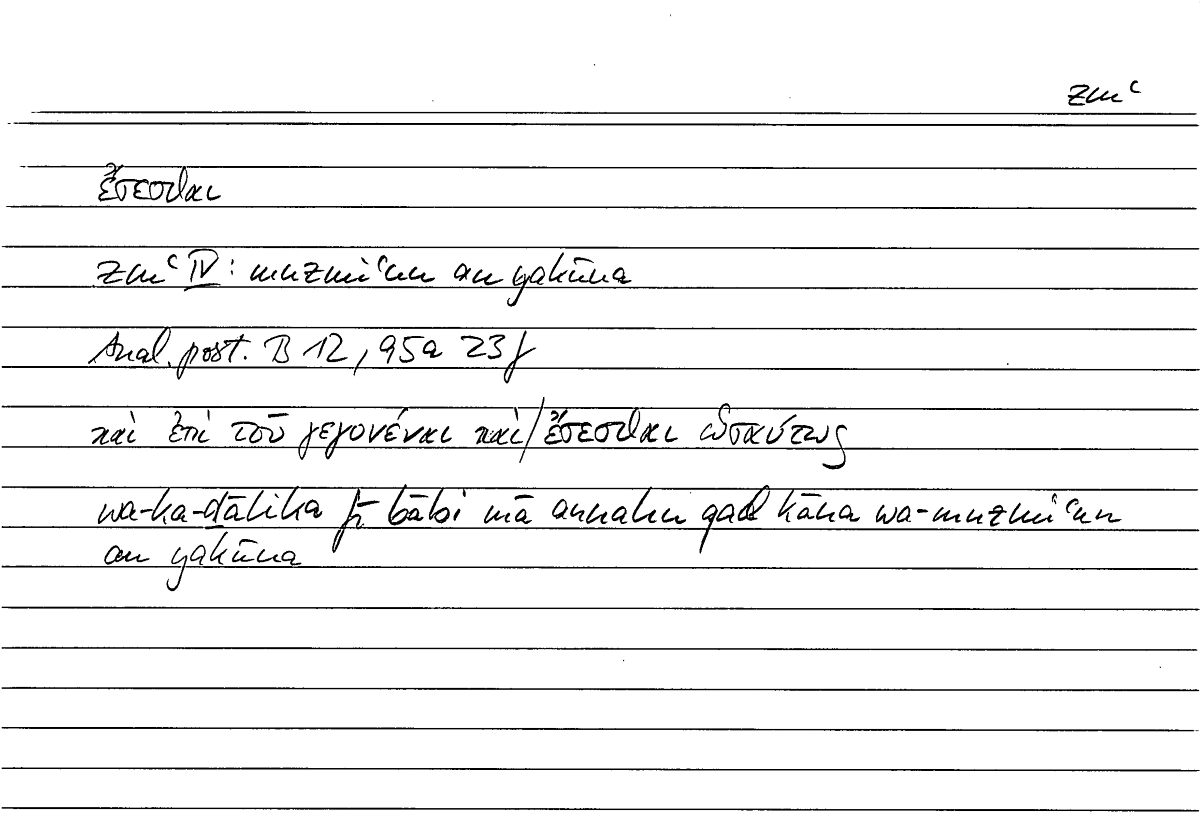 zmʿ
ἔσεσθαι
zmʿ IV : muzmiʿun an yakūna
Anal. post. B 12, 95a 23f
καὶ ἐπὶ τοῦ γεγονέναι καὶ/ἔσεσθαι ὡσαύτως
wa-ka-ḏālika fī bābi mā annahu qad kāna wa-muzmiʿun
an yakūna